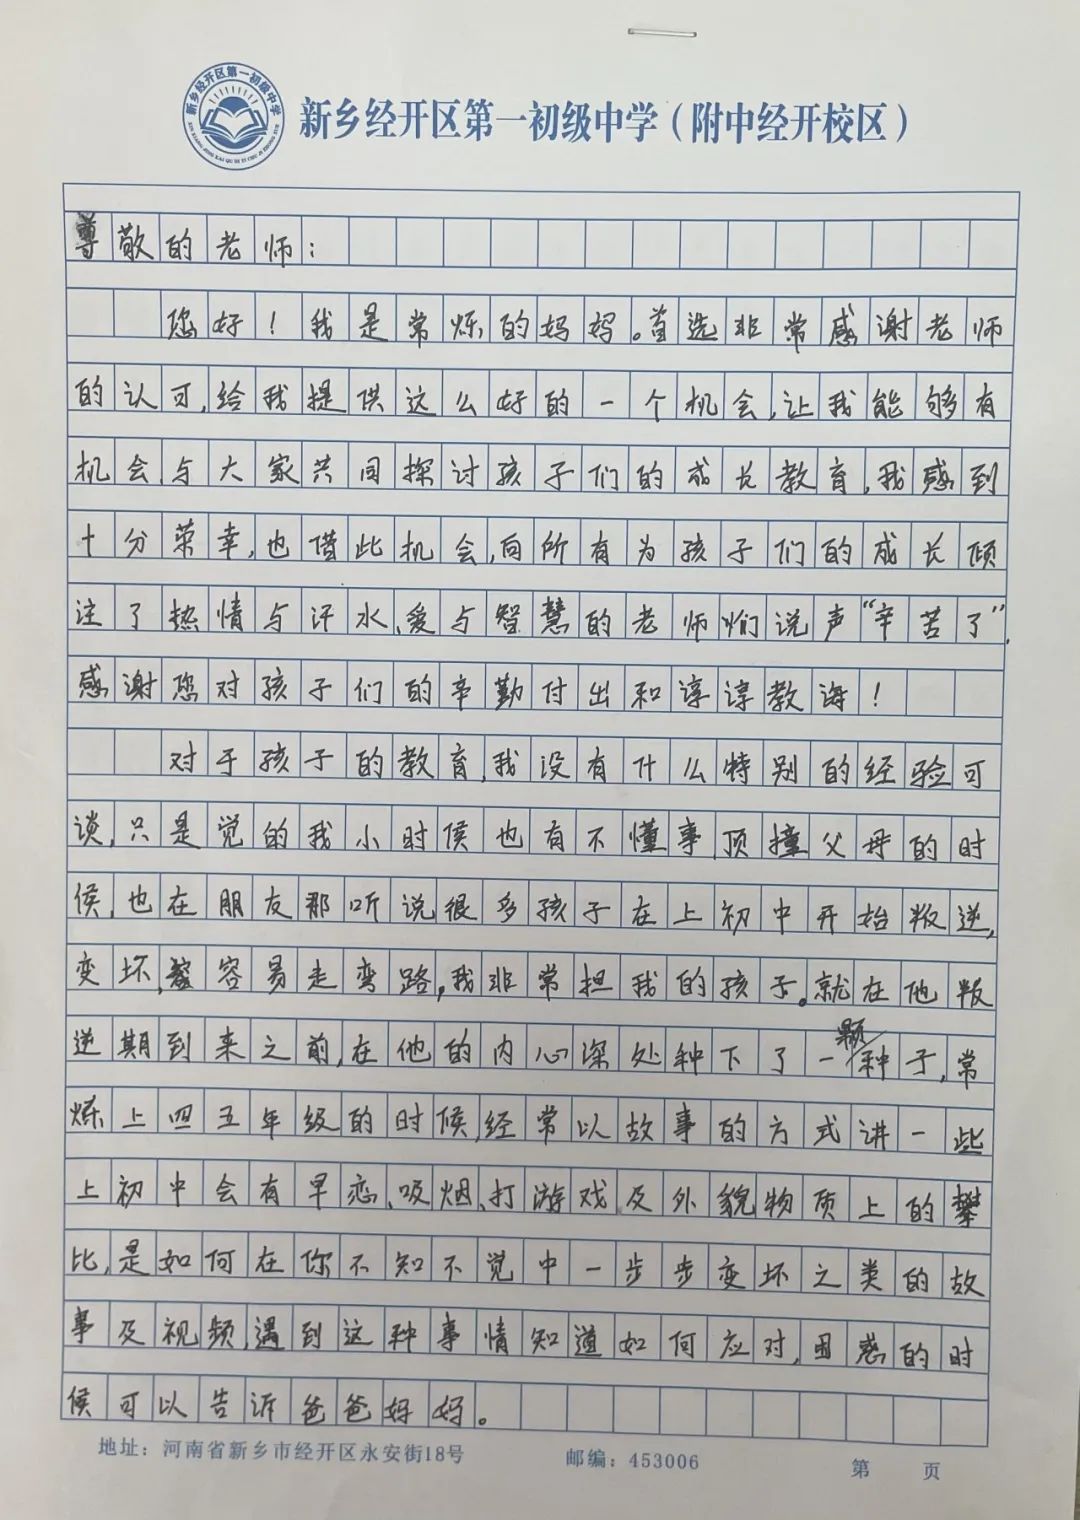 新乡经开区第一初级中学
新乡经开区第一初级中学（附中经开校区）
尊敬的老师：
您好！我是常烁的妈妈。首选非常感谢老师
的认可，给我提供这么好的一个机会，让我能够有
机会与大家共同探讨孩子们的成长教育，我感到
十分荣幸，也借此机会，向所有为孩子们的成长倾
注了热情与汗水、爱与智慧的老师们说声“辛苦了”，
感谢您对孩子们的辛勤付出和谆谆教诲！
对于孩子的教育，我没有什么特别的经验可
谈，只是觉的我小时候也有不懂事顶撞父母的时
候，也在朋友那听说很多孩子在上初中开始叛逆，
变坏，容易走弯路，我非常担我的孩子。就在他叛
逆期到来之前，在他的内心深处种下了一颗种子，常
烁上四五年级的时候，经常以故事的方式讲一些
上初中会有早恋、吸烟、打游戏及外貌物质上的攀
比，是如何在你不知不觉中一步步变坏之类的故
事及视频，遇到这种事情知道如何应对，困惑的时
候可以告诉爸爸妈妈。
地址：河南省新乡市经开区永安街18号 邮编：453006 第 页